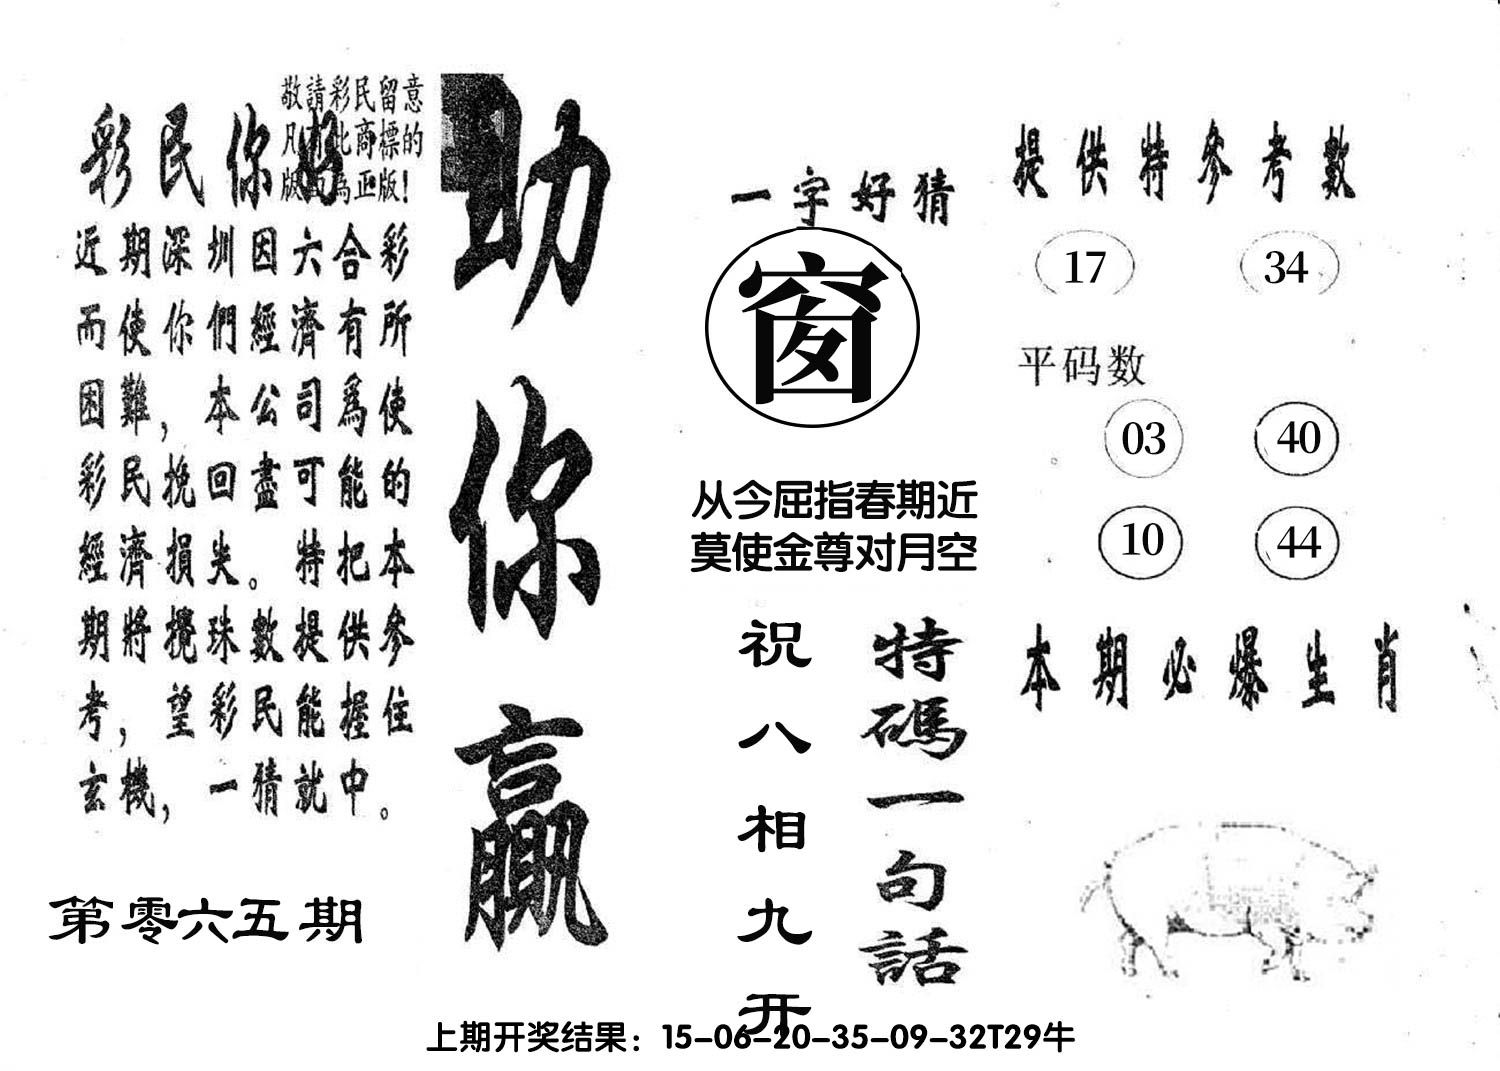 敬請彩民留意
凡有此商標的
版面為正版!
彩民你好
近期深圳因六合彩
而使你們經濟有所
困難，本公司爲使
彩民挽回盡可能的
經濟損失。特把本
期將攪珠數提供參
考，望彩民能握住
玄機，一猜就中。
第零六五期
助你贏
一字好猜
窗
从今屈指春期近
莫使金尊对月空
特碼一句話
祝八相九开
提供特參考數
17 34
平码数
03 40
10 44
本期必爆生肖
上期开奖结果：15-06-20-35-09-32T29牛